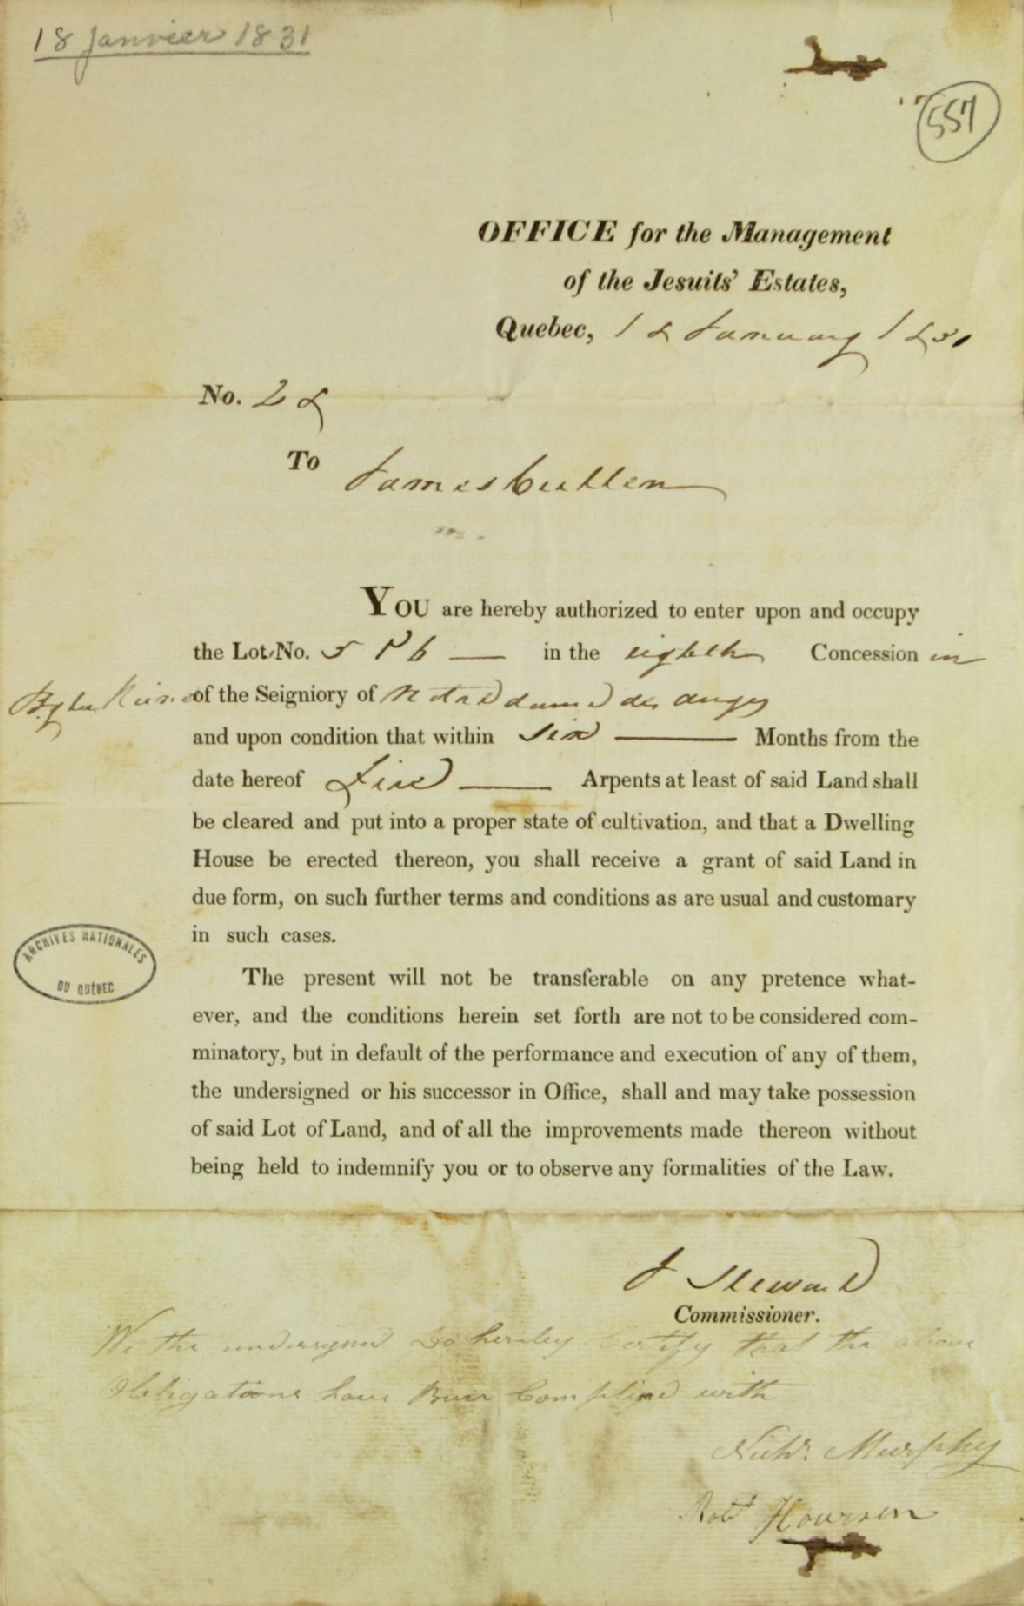 18 Janvier 1831
557
OFFICE for the Management
of the Jesuits' Estates,
Quebec, 18 January 1831
No. 28
To James Cullen
YOU are hereby authorized to enter upon and occupy
the Lot No. 5 P b in the eighth Concession in
of the Seigniory of Notre dame des anges
and upon condition that within Six Months from the
date hereof Six Arpents at least of said Land shall
be cleared and put into a proper state of cultivation, and that a Dwelling
House be erected thereon, you shall receive a grant of said Land in
due form, on such further terms and conditions as are usual and customary
in such cases.
ARCHIVES NATIONALES
DU QUÉBEC
The present will not be transferable on any pretence what-
ever, and the conditions herein set forth are not to be considered com-
minatory, but in default of the performance and execution of any of them,
the undersigned or his successor in Office, shall and may take possession
of said Lot of Land, and of all the improvements made thereon without
being held to indemnify you or to observe any formalities of the Law.
J Steward
Commissioner.
We the undersigned do hereby Certify that the above
Obligations have Been Complied with
Nichs. Murphy
Robt